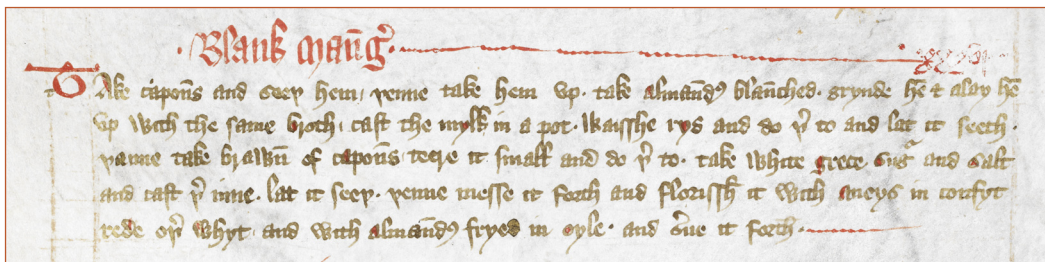 Blank Maung͛
Take capons and seeþ hem, þenne take hem up. take almandꝭ blanched. grynde hē & alay hē
up with the same broth. cast the mylk in a pot. waisshe rys and do þ͛ to and lat it seeth.
þanne take brawn of capons teere it small and do þ͛ to. take white grece sug͛ and salt
and cast þ͛ inne. lat it seeþ. þenne messe it forth and florissh it with aneys in confyt
rede oþ͛ whyt. and with almandꝭ fryed in oyle. and s͛ue it forth.